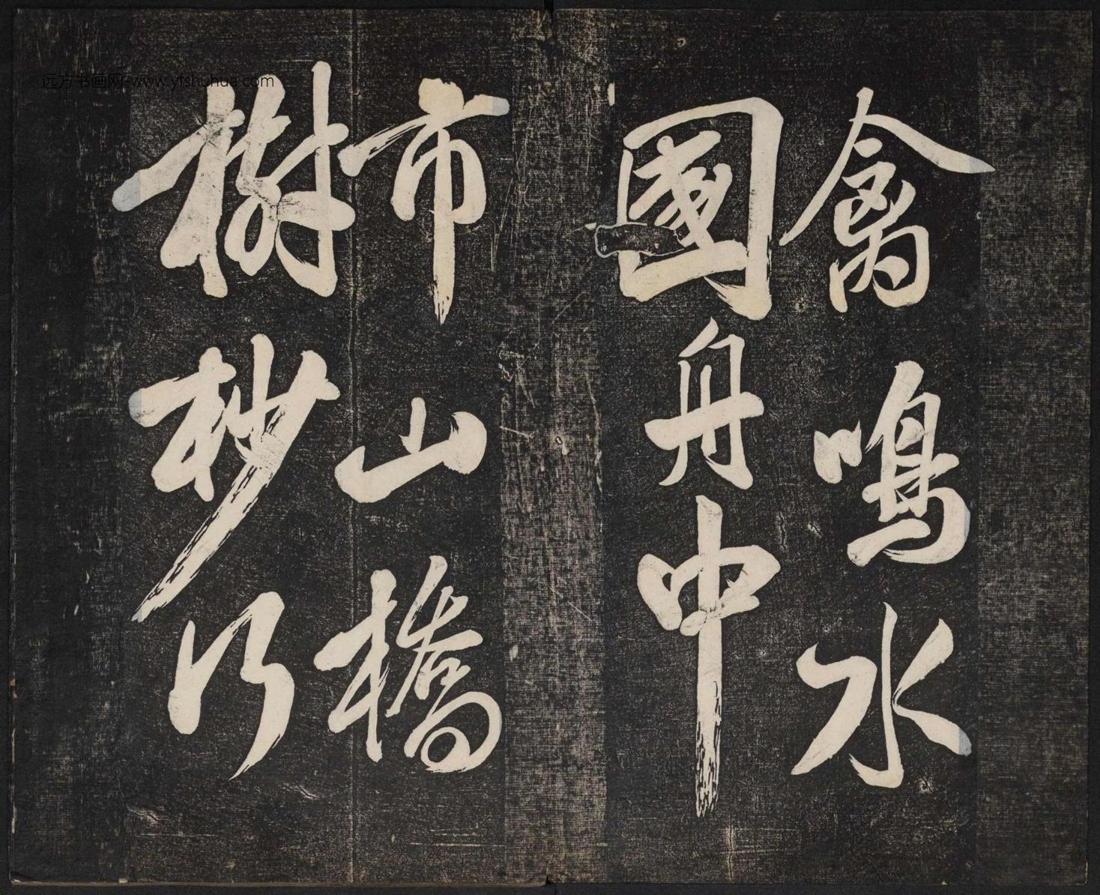 禽鳴水
國舟中
市山橋
樹杪行
远方书画网 www.yfshuhua.com